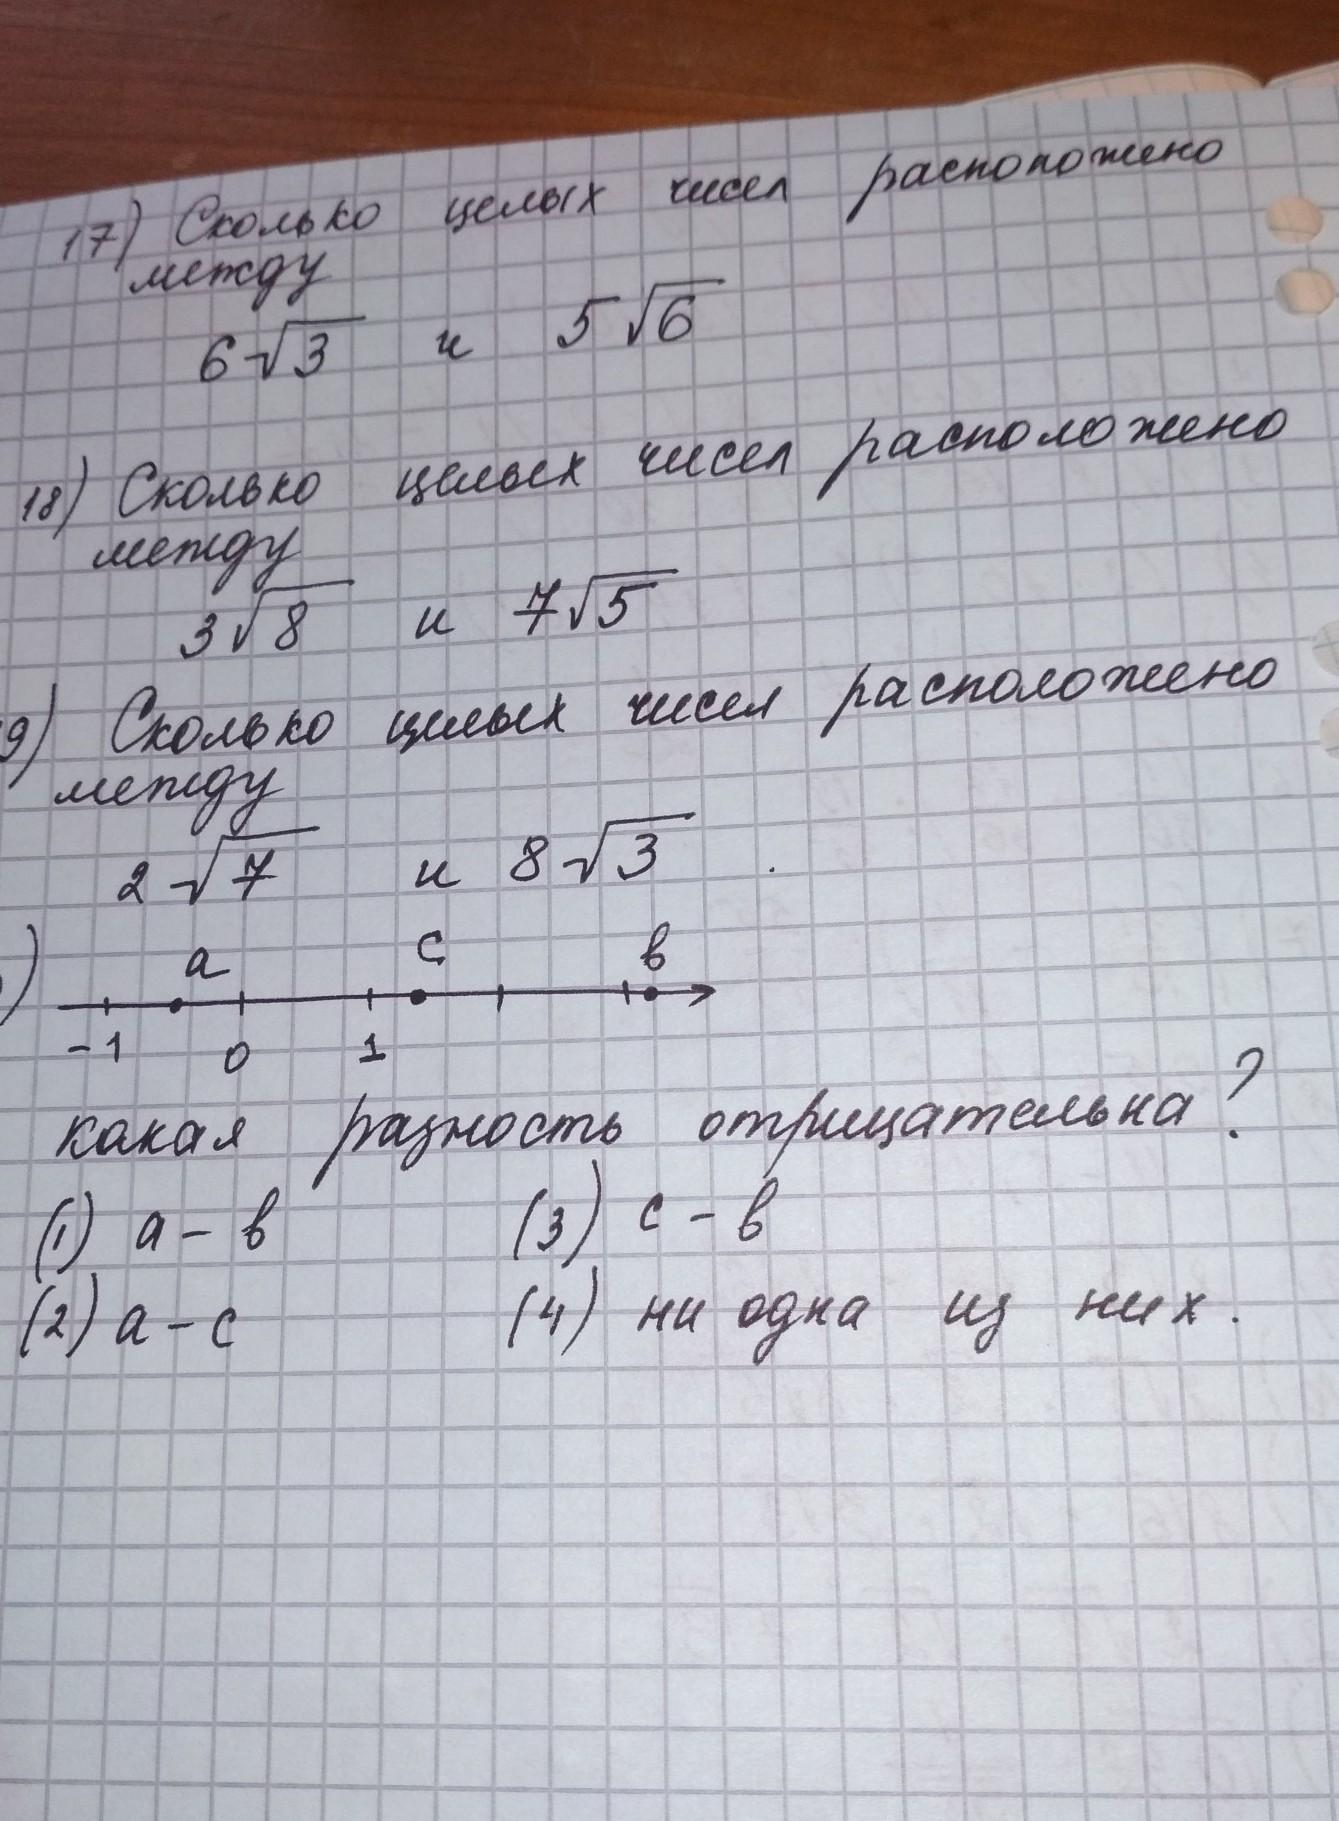 17) Сколько целых чисел расположено
между
6√3 и 5√6
18) Сколько целых чисел расположено
между
3√8 и 7√5
9) Сколько целых чисел расположено
между
2√7 и 8√3 .
) a c в
-1 0 1
какая разность отрицательна?
(1) a - в (3) c - в
(2) a - c (4) ни одна из них.